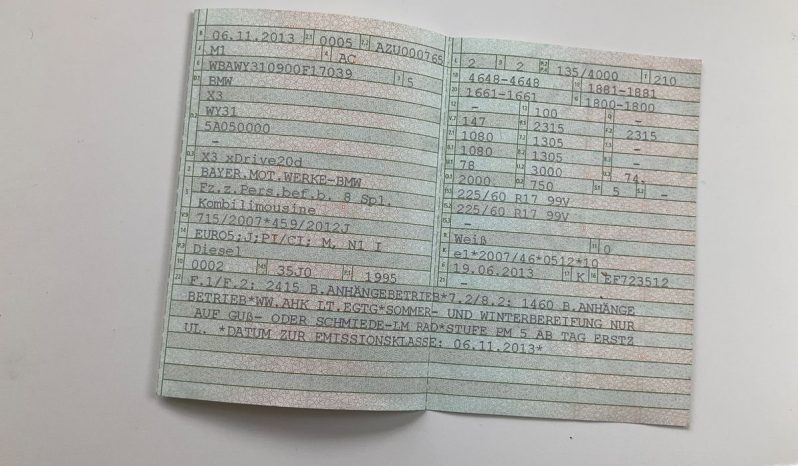 06.11.2013 0005 AZU000765
M1 AC
WBAWY310900F17039 5
BMW
X3
WY31
5A050000
-
X3 xDrive20d
BAYER.MOT.WERKE-BMW
Fz.z.Pers.bef.b. 8 Spl.
Kombilimousine
715/2007*459/2012J
EURO5;J;PI/CI; M, N1 I
Diesel
0002 35J0 1995
2 2 135/4000 210
4648-4648 1881-1881
1661-1661 1800-1800
- 100 -
147 2315 2315
1080 1305 -
1080 1305 -
78 3000 74
2000 750 5 -
225/60 R17 99V
225/60 R17 99V
-
Weiß 0
e1*2007/46*0512*10
19.06.2013 K EF723512
-
F.1/F.2: 2415 B.ANHÄNGEBETRIEB*7.2/8.2: 1460 B.ANHÄNGE
BETRIEB*WW.AHK LT.EGTG*SOMMER- UND WINTERBEREIFUNG NUR
AUF GUß- ODER SCHMIEDE-LM RAD*STUFE PM 5 AB TAG ERSTZ
UL. *DATUM ZUR EMISSIONSKLASSE: 06.11.2013*